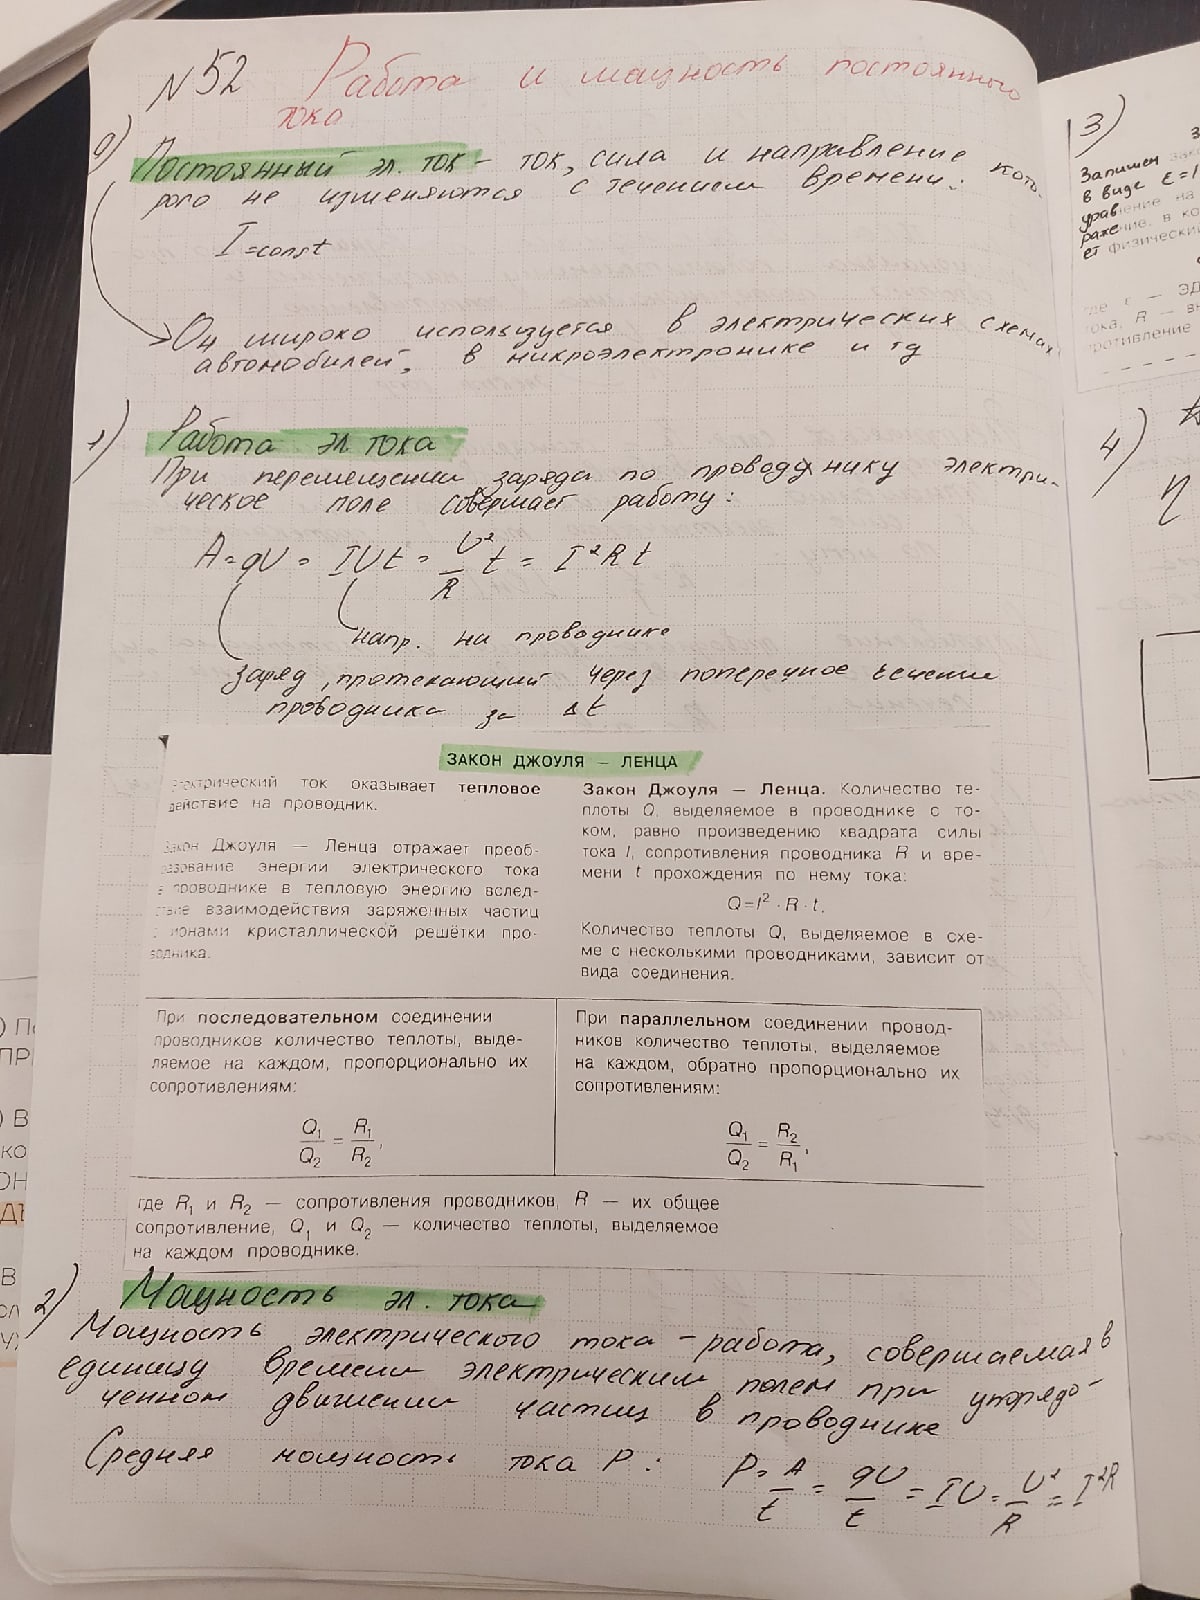 N 52 Работа и мощность постоянного
тока
0) Постоянный эл. ток - ток, сила и направление кото-
рого не изменяются с течением времени:
I = const
Он широко используется в электрических схемах
автомобилей, в микроэлектронике и тд
1) Работа эл тока
При перемещении заряда по проводнику электри-
ческое поле совершает работу:
A = qU = IUt = U²/R t = I²Rt
напр. на проводнике
заряд, протекающий через поперечное сечение
проводника за Δt
ЗАКОН ДЖОУЛЯ – ЛЕНЦА
ектрический ток оказывает тепловое
действие на проводник.
Закон Джоуля — Ленца отражает преоб-
разование энергии электрического тока
в проводнике в тепловую энергию вслед-
ствие взаимодействия заряженных частиц
с ионами кристаллической решётки про-
водника.
Закон Джоуля — Ленца. Количество те-
плоты Q, выделяемое в проводнике с то-
ком, равно произведению квадрата силы
тока I, сопротивления проводника R и вре-
мени t прохождения по нему тока:
Q=I² · R · t.
Количество теплоты Q, выделяемое в схе-
ме с несколькими проводниками, зависит от
вида соединения.
При последовательном соединении
проводников количество теплоты, выде-
ляемое на каждом, пропорционально их
сопротивлениям:
Q₁/Q₂ = R₁/R₂,
При параллельном соединении провод-
ников количество теплоты, выделяемое
на каждом, обратно пропорционально их
сопротивлениям:
Q₁/Q₂ = R₂/R₁,
где R₁ и R₂ — сопротивления проводников, R — их общее
сопротивление, Q₁ и Q₂ — количество теплоты, выделяемое
на каждом проводнике.
2) Мощность эл. тока
Мощность электрического тока - работа, совершаемая в
единицу времени электрическим полем при упорядо-
ченном движении частиц в проводнике
Средняя мощность тока P: P = A/t = qU/t = IU = U²/R = I²R
3)
Запишем
в виде ε=I
уравнение на
ражение, в ко
ет физический
где ε — ЭД
тока, R — вн
противление
4)
η